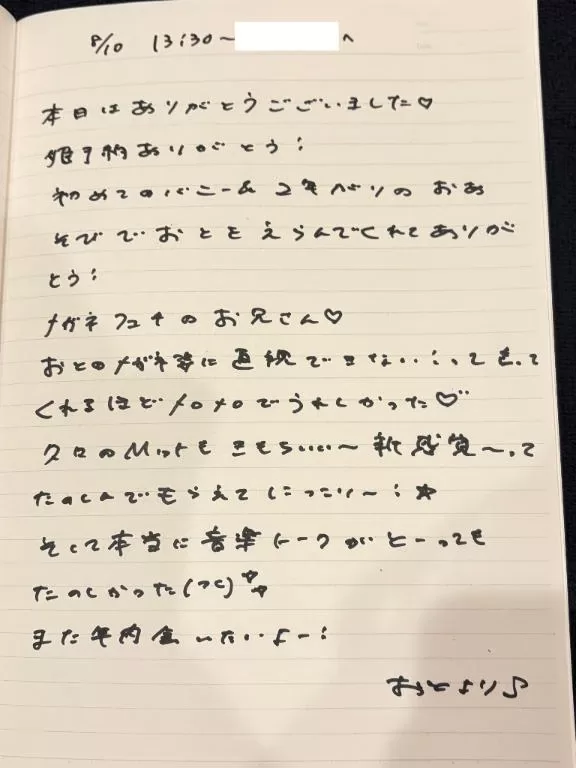 8/10 13:30〜 へ
本日はありがとうございました♡
姫予約ありがとう!
初めてのバニー& 2年ぶりのおあ
そびでおとをえらんでくれてありが
とう!
メガネフェチのお兄さん♡
おとのメガネ姿に直視できない!って言って
くれるほどメロメロでうれしかった♡
クロのMットもきもちいい〜新感覚〜って
たのしんでもらえてにっこり〜!☆
そして本当に音楽トークがとーっても
たのしかった
また年内会いたいよー!
おとより♪